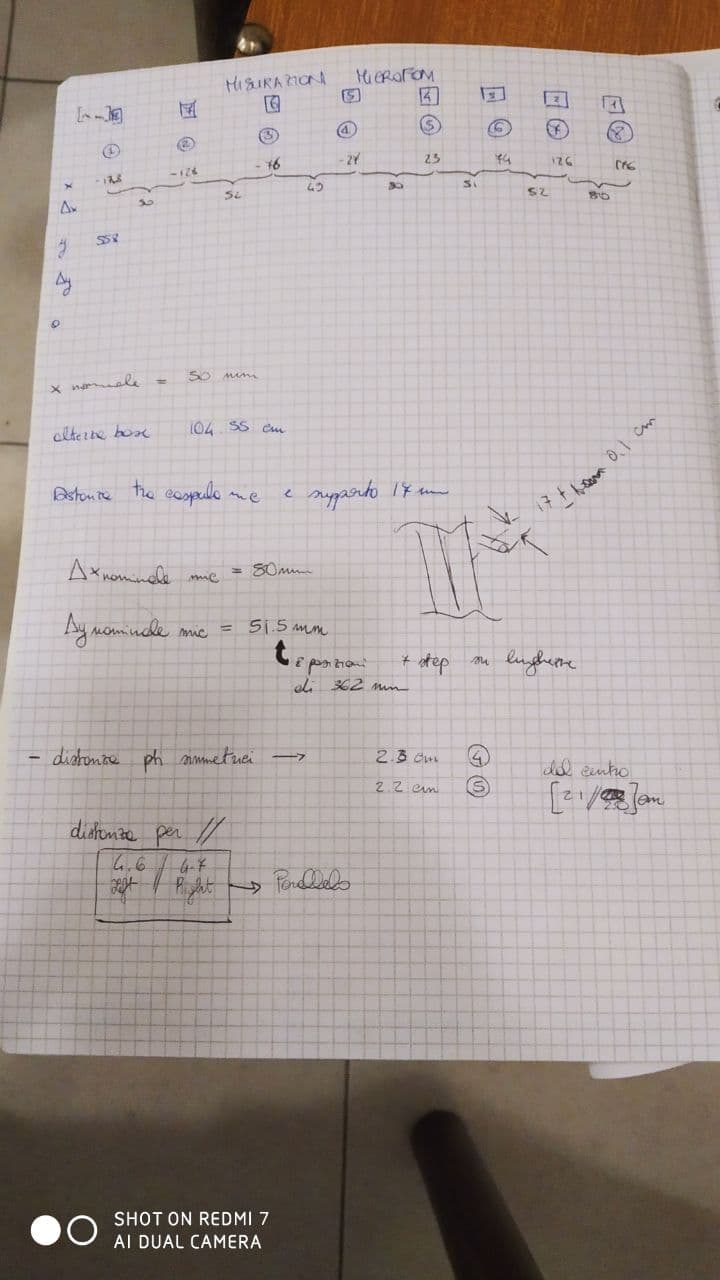 MISURAZIONI MICROFONI
7 6 5 4 3 2 1
1 2 3 4 5 6 7 8
x -128 -76 23 74 126
Δx 50 52 51 52
y 558
Δy
x nominale = 50 mm
altezza base 104.55 cm
Distanza tra capsula mic e supporto 17 mm
17 ± 0.1 cm
Δx nominale mic = 50mm
Δy nominale mic = 51.5 mm
posizioni x step su lunghezza
di 362 mm
- distanza ph simmetrici → 2.3 cm 4
2.2 cm 5
dal centro
[21// ] cm
distanza per //
4.6 // 4.7
Left // Right → Parallelo
SHOT ON REDMI 7
AI DUAL CAMERA